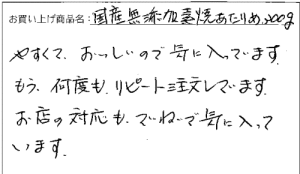 お買い上げ商品名:国産無添加素焼あたりめ.200g
やすくて、おいしいので気に入っています.
もう、何度も、リピート注文しています.
お店の対応も、ていねいで気に入って
います.